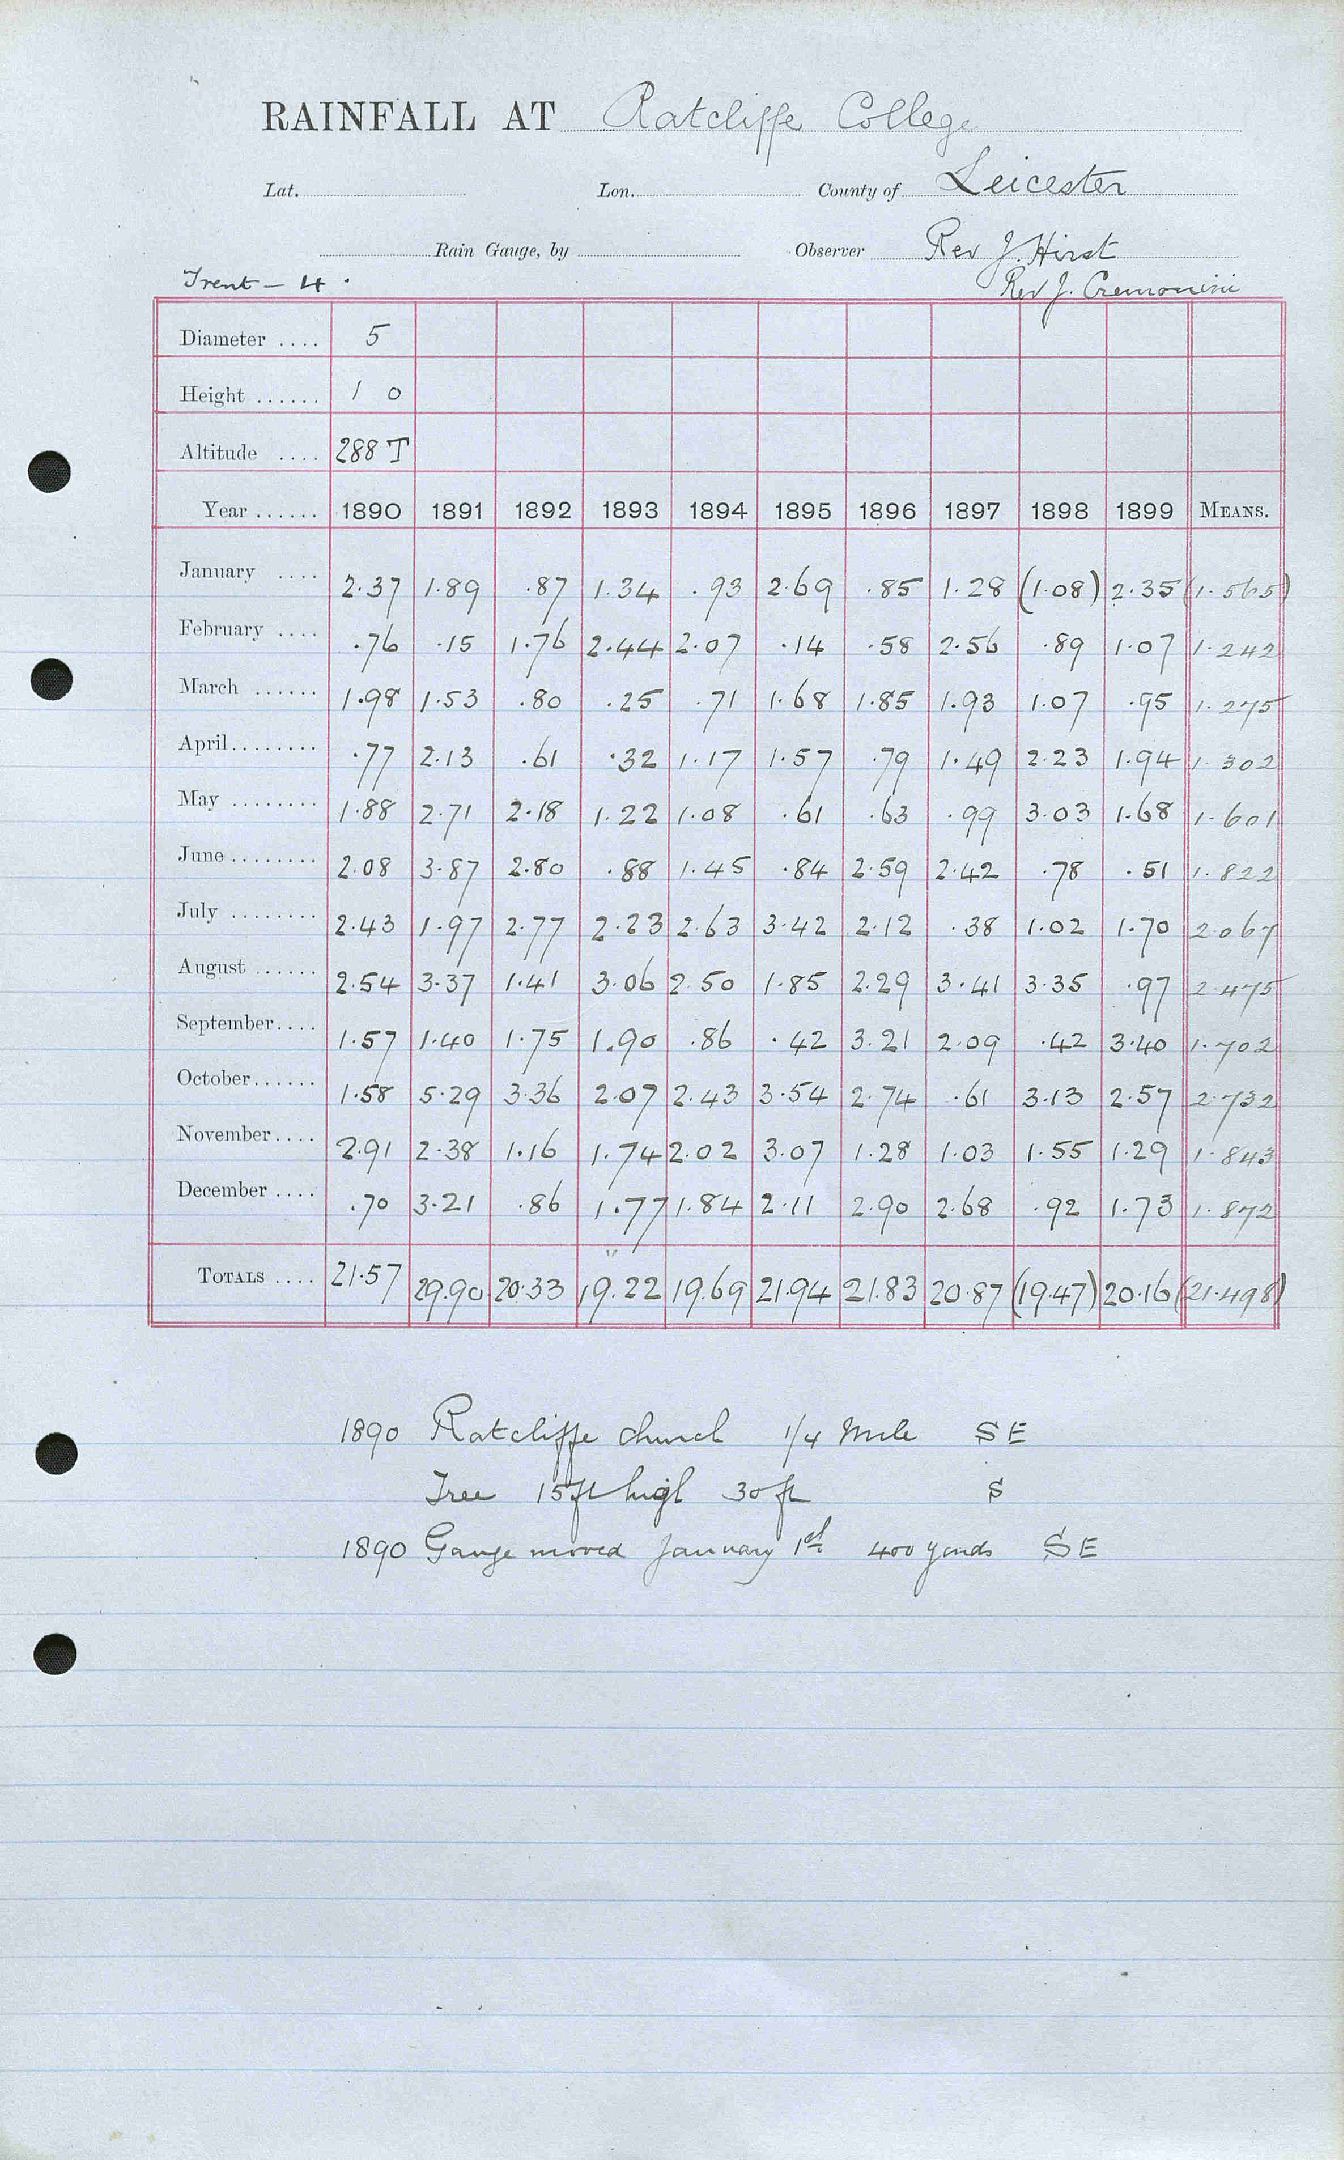 RAINFALL AT Ratcliffe College
Lat. Lon. County of Leicester
Rain Gauge, by Observer Rev J. Hirst
Trent - 4. Rev J. Cremonini
Diameter .... 5
Height ...... 1 0
Altitude .... 288 T
Year ...... 1890 1891 1892 1893 1894 1895 1896 1897 1898 1899 MEANS.
January .... 2.37 1.89 .87 1.34 .93 2.69 .85 1.28 (1.08) 2.35 (1.565)
February .... .76 .15 1.76 2.44 2.07 .14 .58 2.56 .89 1.07 1.242
March ...... 1.98 1.53 .80 .25 .71 1.68 1.85 1.93 1.07 .95 1.275
April ........ .77 2.13 .61 .32 1.17 1.57 .79 1.49 2.23 1.94 1.302
May ........ 1.88 2.71 2.18 1.22 1.08 .61 .63 .99 3.03 1.68 1.601
June ........ 2.08 3.87 2.80 .88 1.45 .84 2.59 2.42 .78 .51 1.822
July ........ 2.43 1.97 2.77 2.23 2.63 3.42 2.12 .38 1.02 1.70 2.067
August ...... 2.54 3.37 1.41 3.06 2.50 1.85 2.29 3.41 3.35 .97 2.475
September .... 1.57 1.40 1.75 1.90 .86 .42 3.21 2.09 .42 3.40 1.702
October ...... 1.58 5.29 3.36 2.07 2.43 3.54 2.74 .61 3.13 2.57 2.732
November .... 2.91 2.38 1.16 1.74 2.02 3.07 1.28 1.03 1.55 1.29 1.843
December .... .70 3.21 .86 1.77 1.84 2.11 2.90 2.68 .92 1.73 1.872
TOTALS .... 21.57 29.90 20.33 19.22 19.69 21.94 21.83 20.87 (19.47) 20.16 (21.498)
1890 Ratcliffe Church 1/4 Mile SE
Tree 15ft high 30 ft S
1890 Gauge moved January 1st 400 yards SE